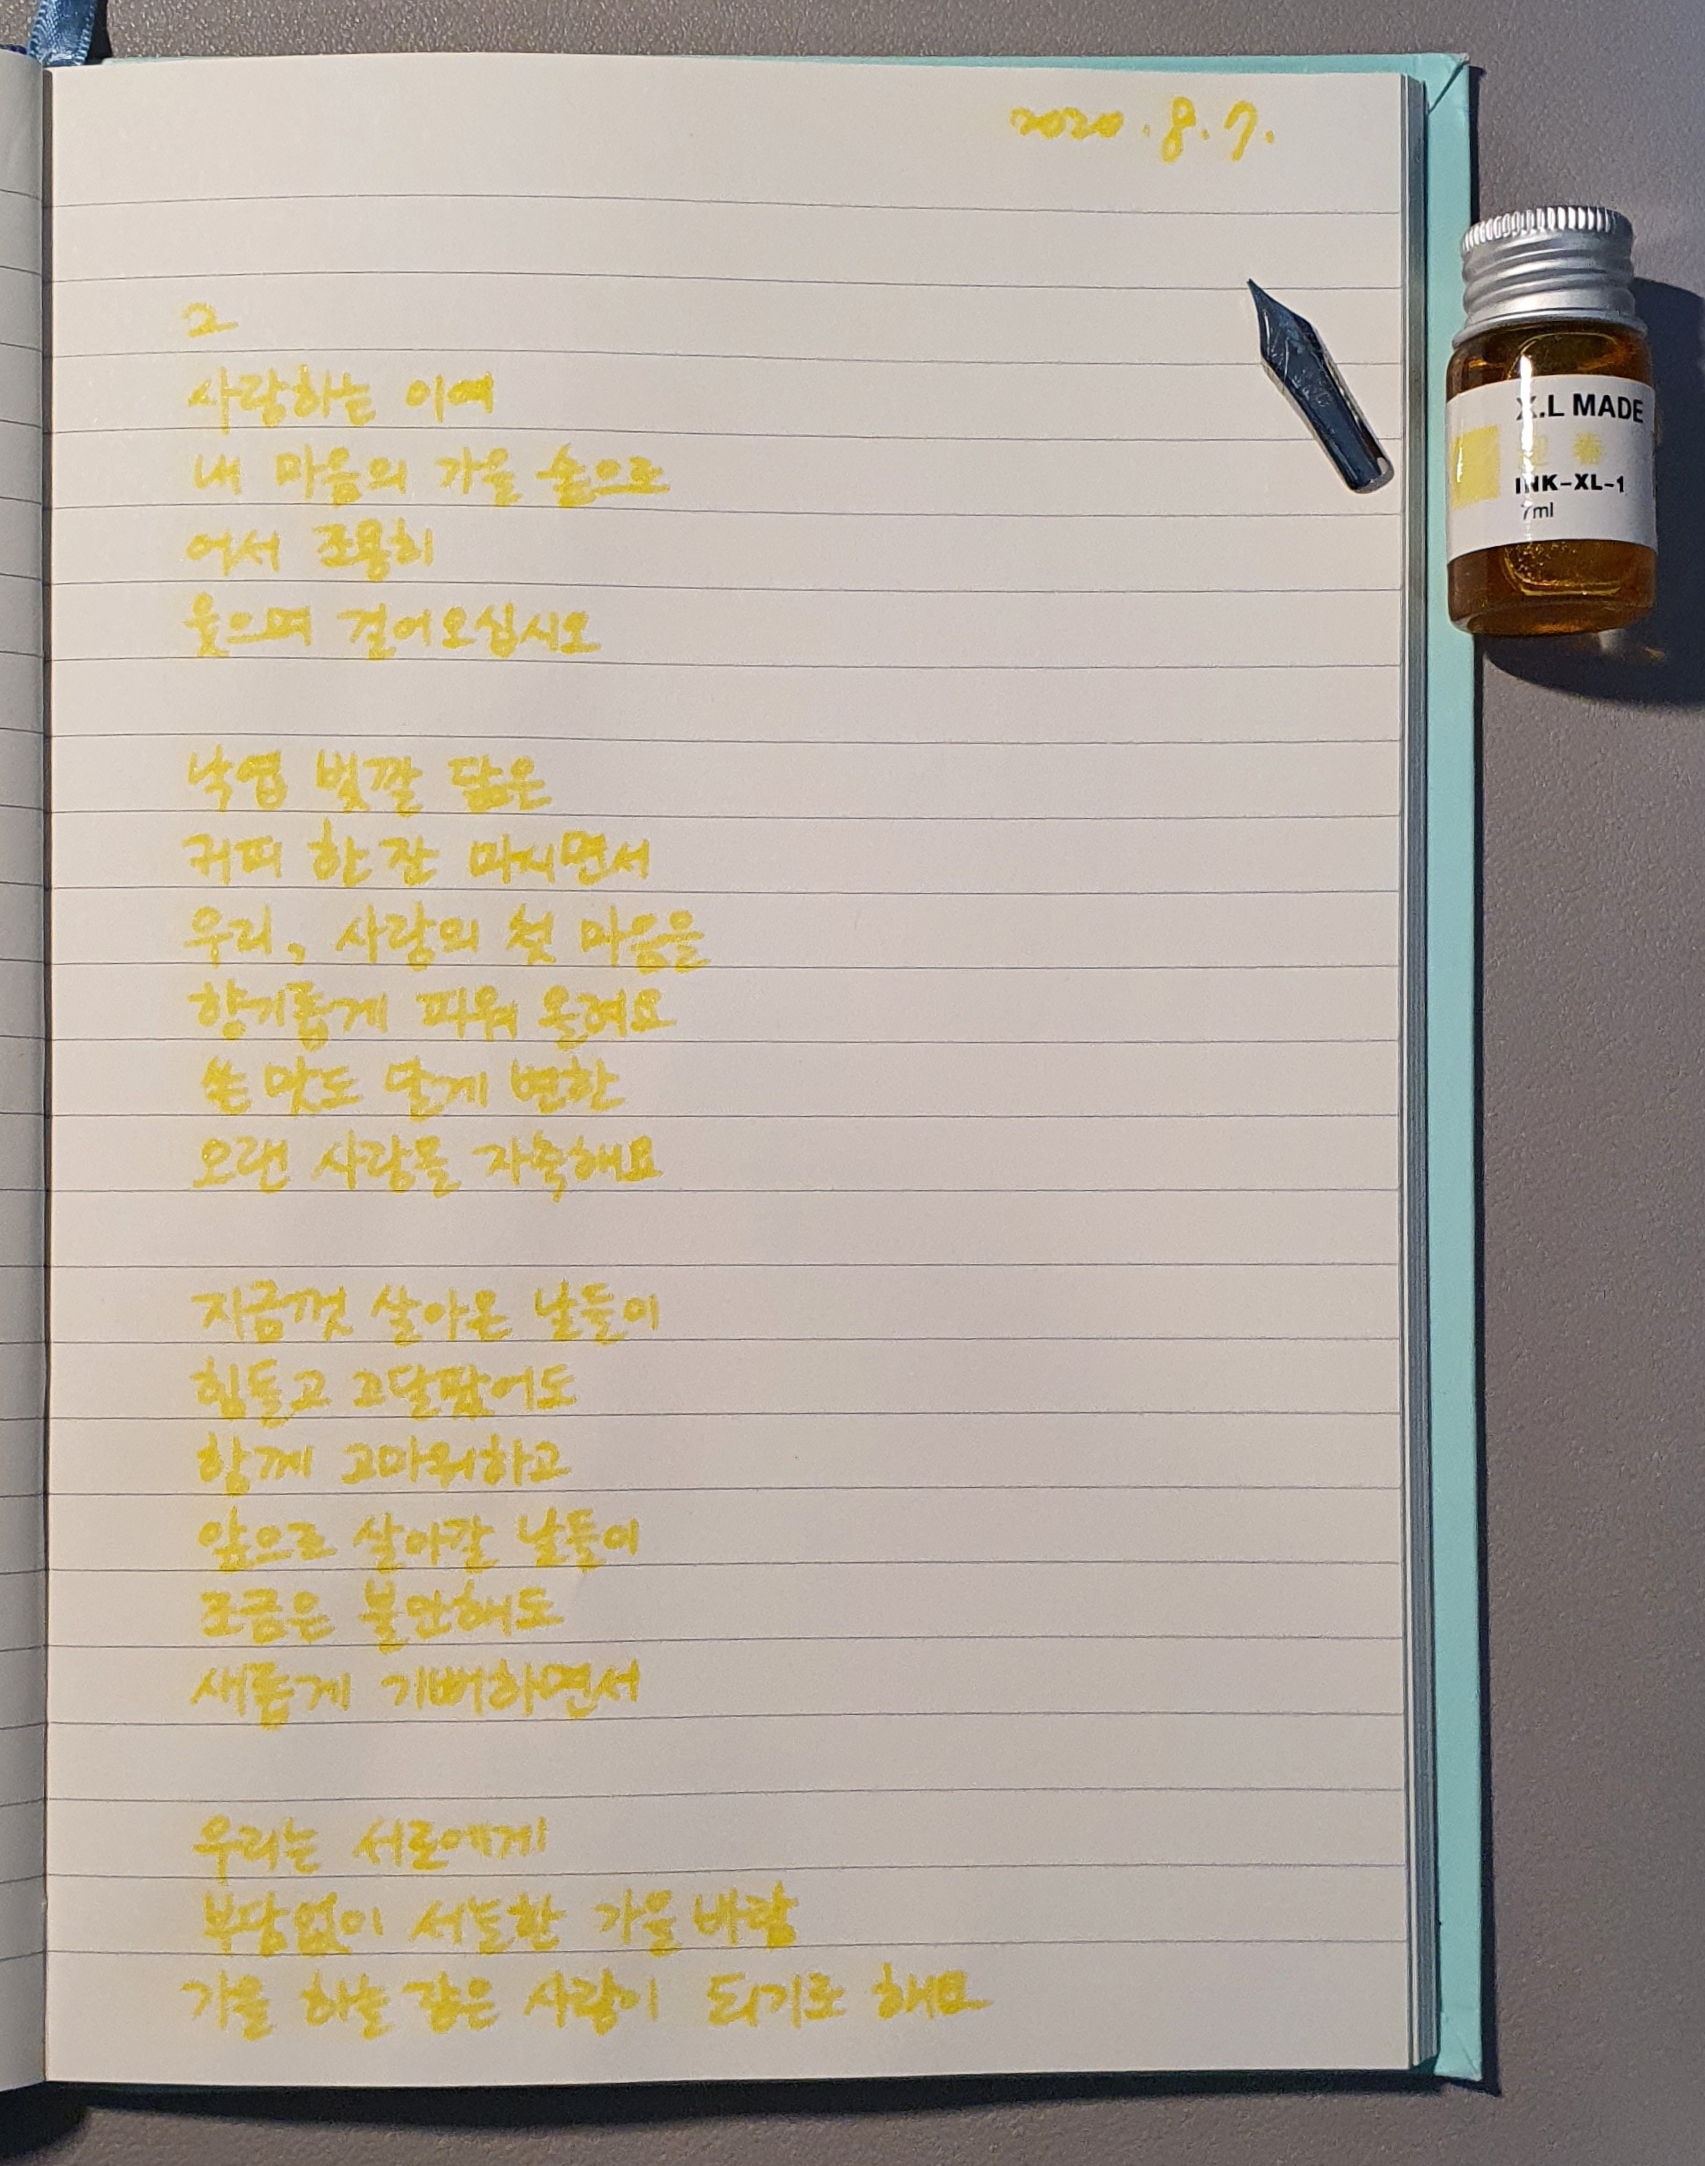 2020.8.7.
2
사랑하는 이여
내 마음의 가을 숲으로
어서 조용히
웃으며 걸어오십시오
낙엽 빛깔 닮은
커피 한 잔 마시면서
우리, 사랑의 첫 마음을
향기롭게 피워 올려요
쓴 맛도 달게 변한
오랜 사랑을 자축해요
지금껏 살아온 날들이
힘들고 고달팠어도
함께 고마워하고
앞으로 살아갈 날들이
조금은 불안해도
새롭게 기뻐하면서
우리는 서로에게
부담없이 서늘한 가을 바람
가을 하늘 같은 사랑이 되기로 해요
X.L MADE
迎春
INK-XL-1
7ml